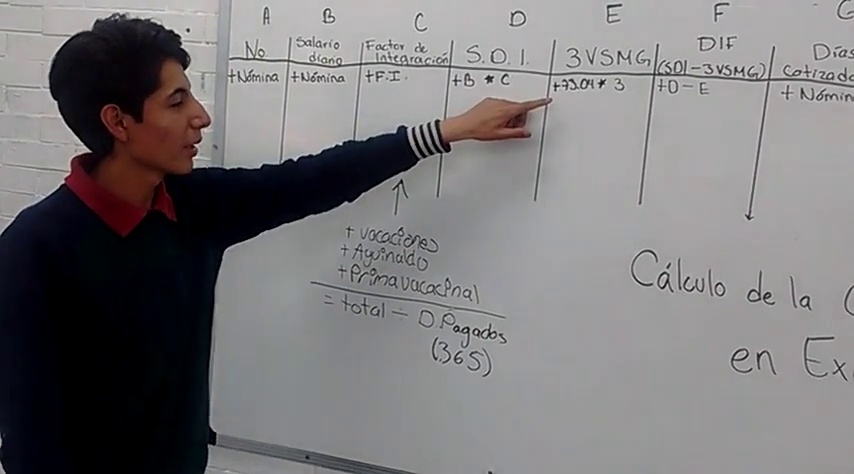 A B C D E F G
No Salario diario Factor de integración S.D.I. 3VSMG DIF (SDI-3VSMG) Días Cotizado
+Nómina +Nómina +F.I. +B * C +73.04 * 3 +D-E + Nómin
+ vacaciones
+ Aguinaldo
+ Prima vacacinal
= total ÷ D.Pagados
(365)
Cálculo de la
en Ex